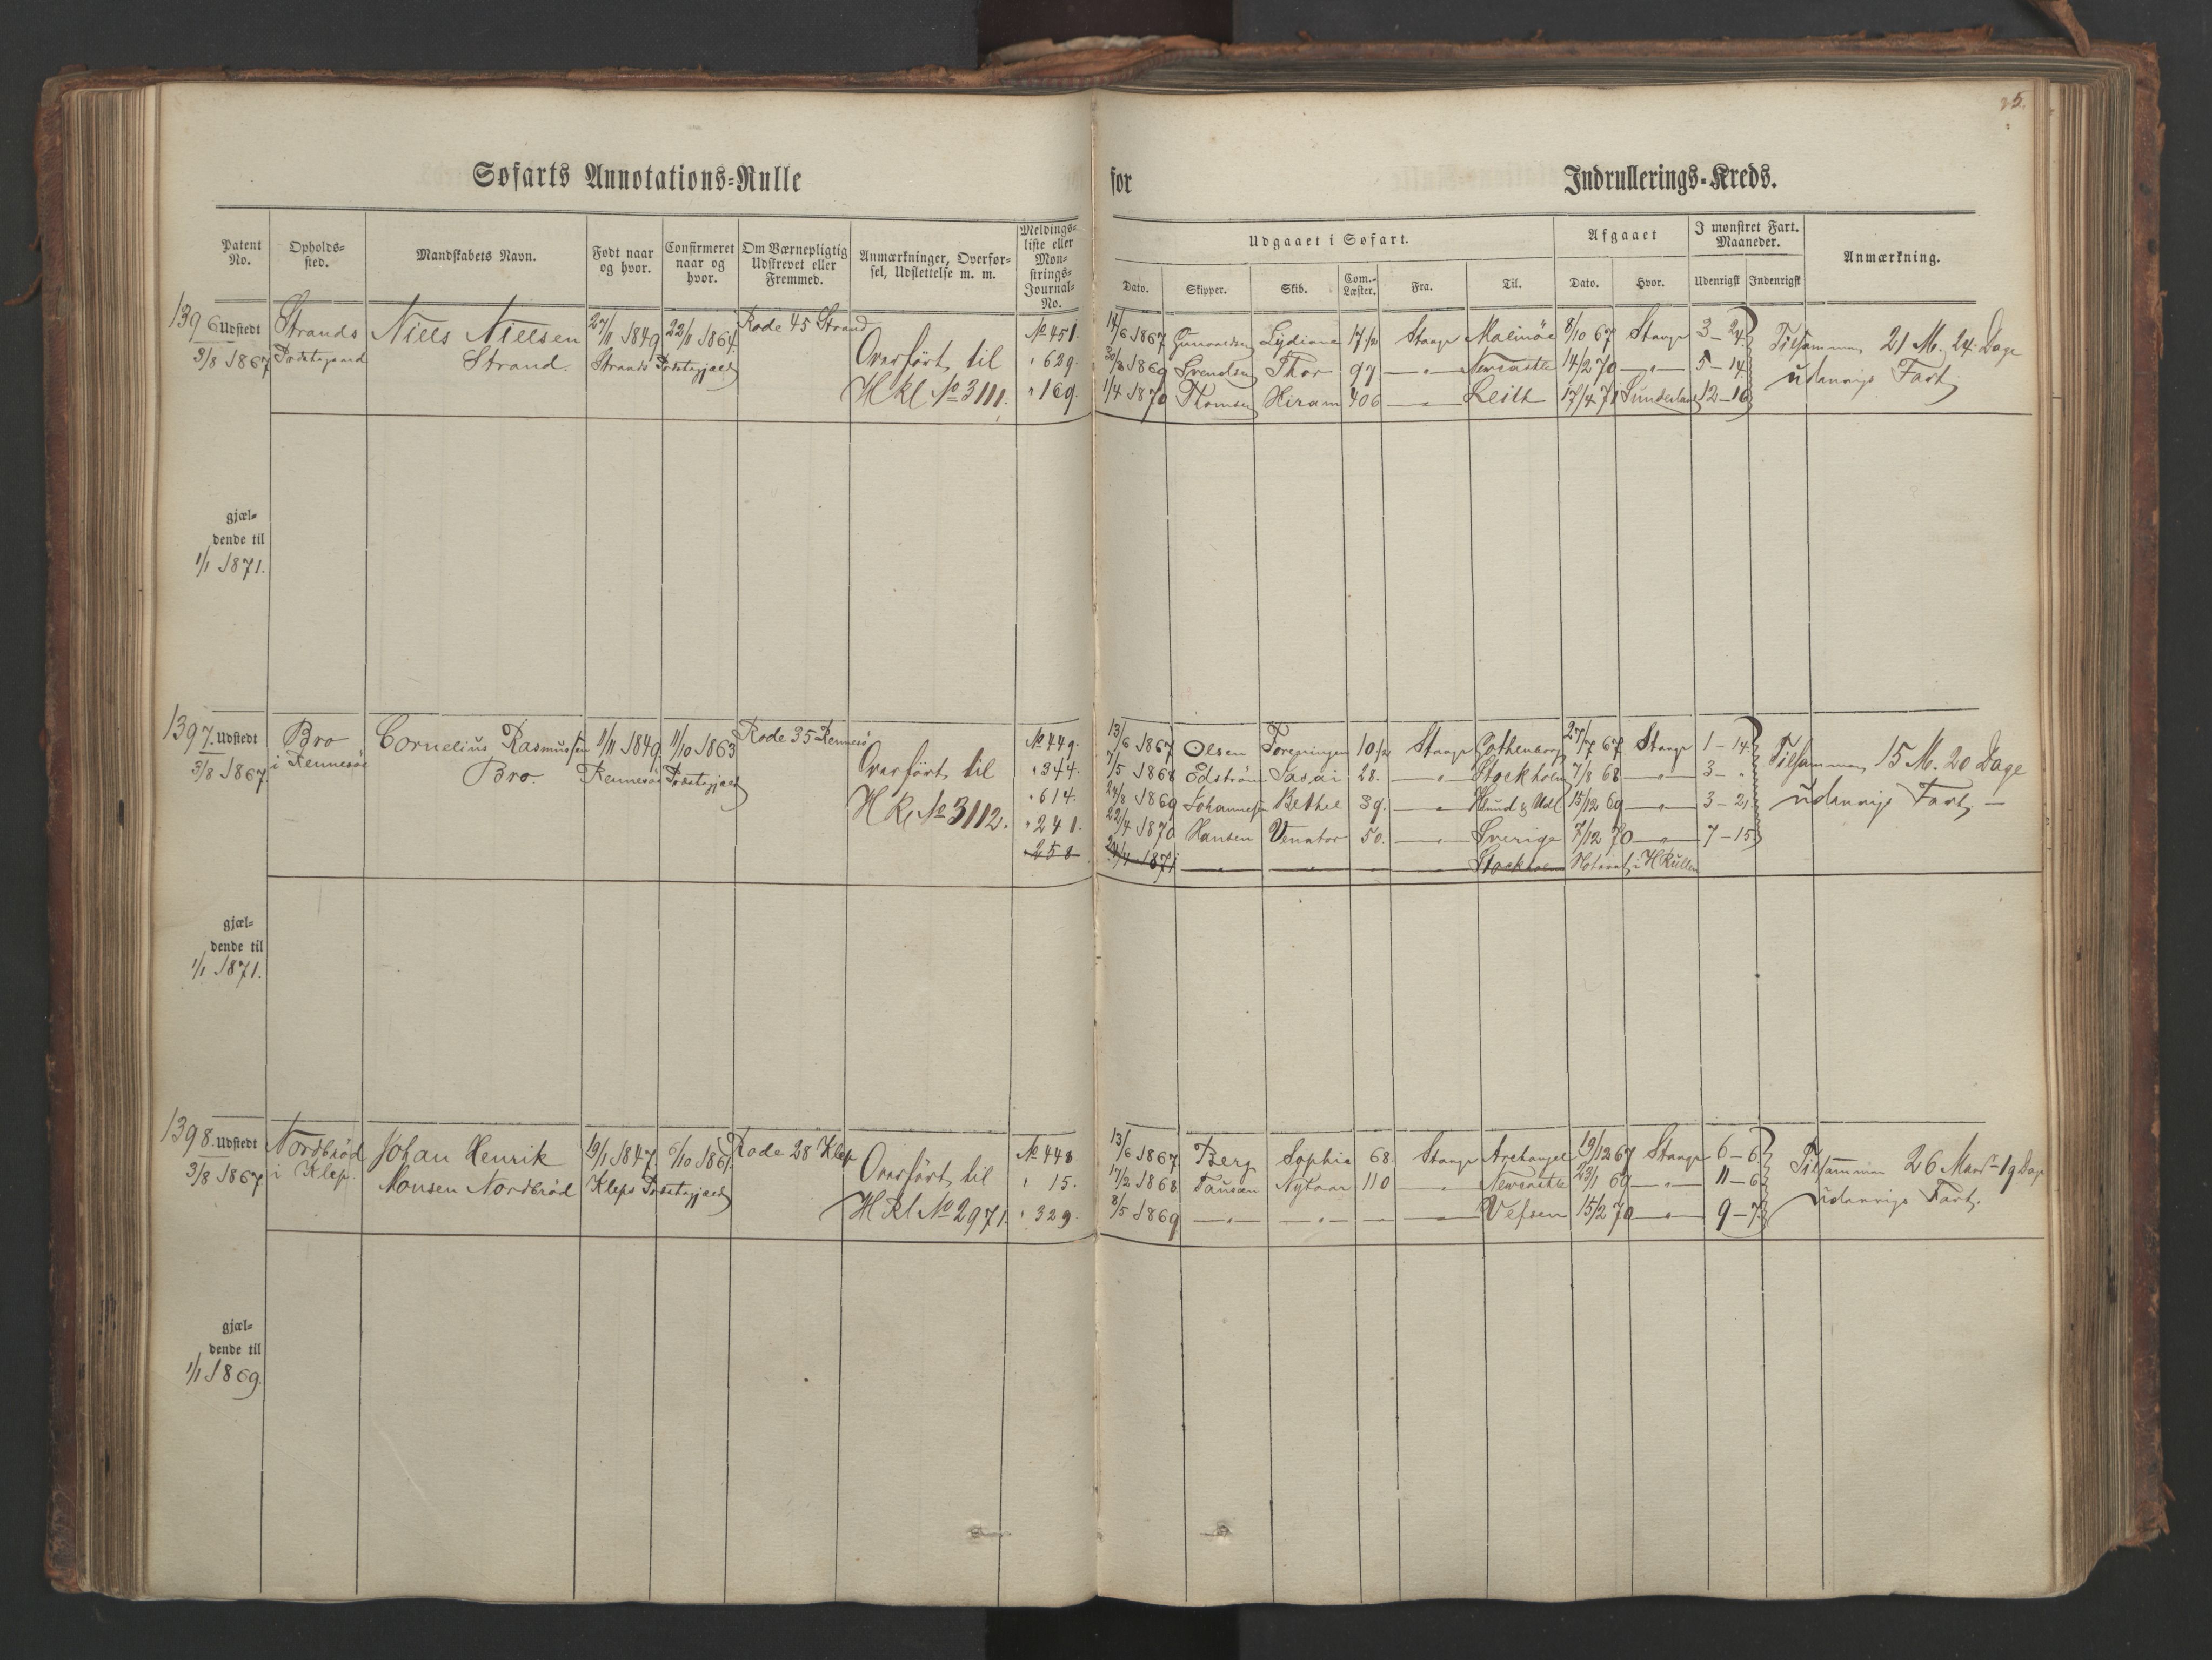 25.
Søfarts Annotations-Rulle for Indrullerings-Kreds.
Patent No. Opholds-sted. Mandskabets Navn. Født naar og hvor. Confirmeret naar og hvor. Om Værnepligtig Udskrevet eller Fremmed. Anmærkninger, Overfør-sel, Udslettelse m. m. Meldings-liste eller Møn-strings-Journal-No.
Udgaaet i Søfart. Afgaaet I mønstret Fart. Maaneder. Anmærkning.
Dato. Skipper. Skib. Com.-Læster. Fra. Til. Dato. Hvor. Udenrigsk Indenrigsk
1396 Udstedt Strands Niels Nielsen 27/11 1849 22/11 1864. Rode 45 Strand No 451. 14/6 1867 Lydiana 17 1/2 Stavgr Malmöe 8/10 67 Stavgr 3-24. Tilsammen 21 M. 24. Dage
3/8 1867 Præstegaard Strand. Strands Præstegjæld Overført til " 629. 30/8 1869 Svendsen Thor 97. —"— Newcastle 14/2 70 —"— 5-14. udenrigs Fart
HRl No 3111. " 169. 1/4 1870 Thomsen Hiram 406 —"— Leith 17/4 71 Sunderland 12-16
gjæl-
dende til
1/1 1871.
1397. Udstedt Bro Cornelius Rasmussen 1/11 1849. 11/10 1863 Rode 35 Rennesö No 449. 13/6 1867 Olsen Foreningen 10 1/2 Stavgr Gothenborg 27/7 67 Stavgr 1-14. Tilsammen 15 M. 20 Dage
3/8 1867. i Rennesöe Bro Rennesöe Præstegjæld Overført til " 344. 7/5 1868 Edström 28. —"— Stockholm 7/8 68 —"— 3- " udenrigs Fart —
" 614. 24/8 1869 Johannesen Bethel 39. —"— 15/12 69 —"— 3-21.
HRl No 3112. " 241. 22/4 1870 Hansen Venator 50. —"— Sverige 7/12 70 —"— 7-15
" 258 24/4 1871 —"— —"— —"— —"— Stockholm Noteret i HRullen
gjæl-
dende til
1/1 1871.
1398. Udstedt Nordbröd Johan Henrik 19/1 1847. 6/10 1861. Rode 28 Klep No 448 13/6 1867 Berg Sophie 68. Stavgr Archangel 19/12 67 Stavgr 6-6 Tilsammen 26 Maan. 19 Dage
3/8 1867 i Klep. Monsen Nordbröd Kleps Præstegjæld Overført til " 15. 17/2 1868 Tausen Nytaar 110 —"— Newcastle 23/1 69 —"— 11-6 udenrigs Fart.
HRl No 2971. " 329. 8/5 1869 —"— —"— — —"— Vefsen 15/2 70 —"— 9-7.
gjæl-
dende til
1/1 1869.